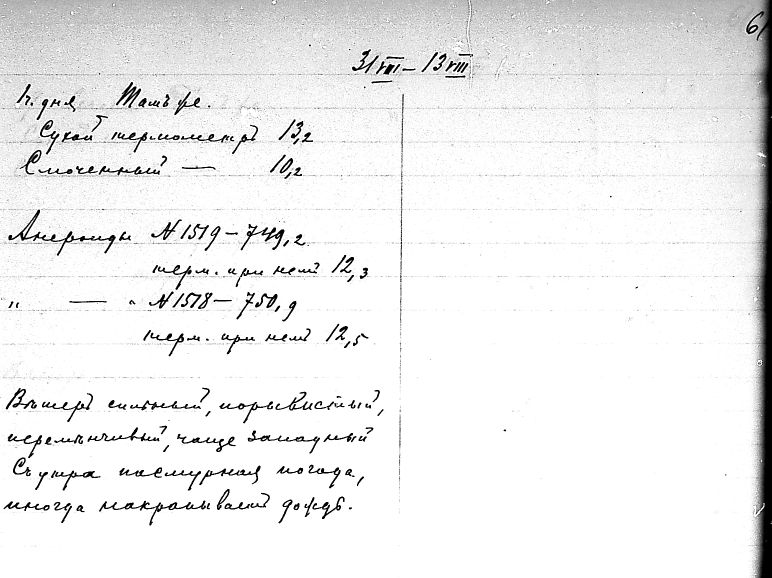 61
31 VIII – 13 VIII
1 ч. дня Тамъ же.
Сухой термометръ 13,2
Смоченный — 10,2
Анероиды N 1519 – 749,2
терм. при немъ 12,3
„ — „ N 1518 – 750,9
терм. при немъ 12,5
Вѣтеръ сильный, порывистый,
перемѣнчивый, чаще западный
Съ утра пасмурная погода,
иногда накрапываетъ дождь.